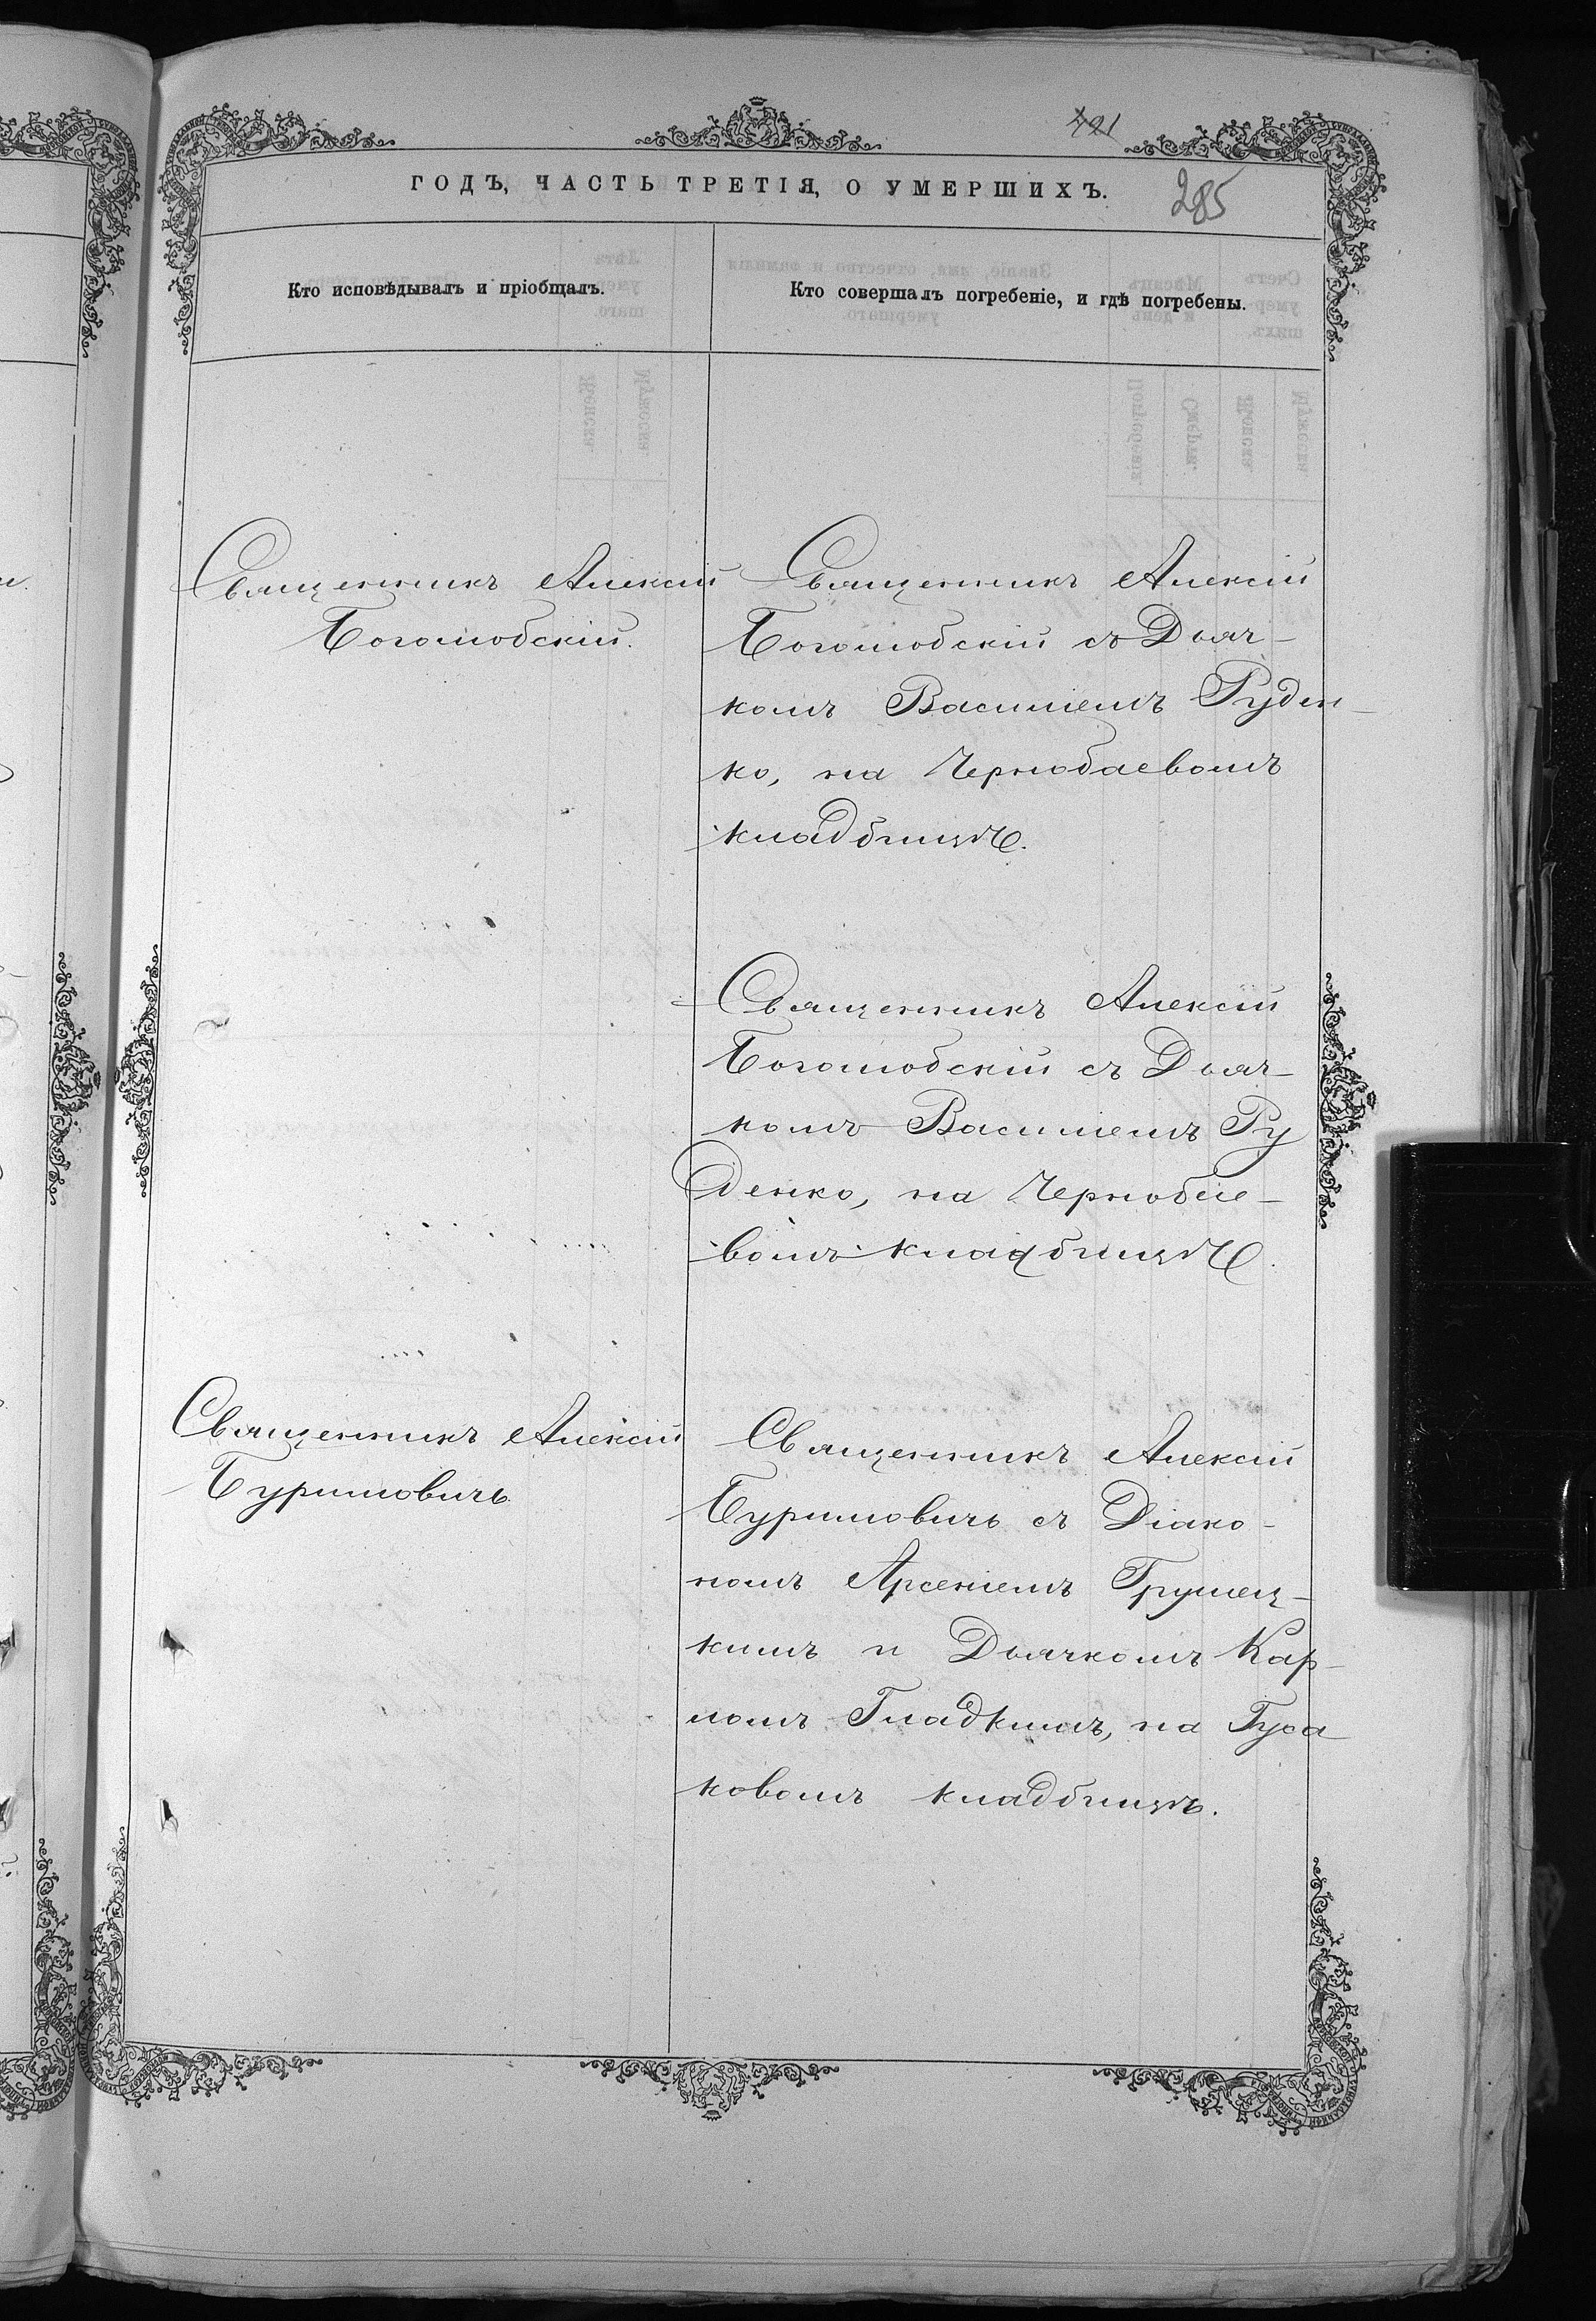 421
ГОДЪ, ЧАСТЬ ТРЕТІЯ, О УМЕРШИХЪ.
285
Кто исповѣдывалъ и пріобщалъ.
Кто совершалъ погребеніе, и гдѣ погребены.
Священникъ Алексій
Боголюбскій.
Священникъ Алексій
Боголюбскій съ Дьяч-
комъ Василіемъ Руден-
ко, на Чернобаевомъ
кладбищѣ.
Священникъ Алексій
Боголюбскій съ Дьяч-
комъ Василіемъ Ру
денко, на Чернобае-
вомъ кладбищѣ.
Священникъ Алексій
Буримовичъ
Священникъ Алексій
Буримовичъ съ Діако-
номъ Арсеніемъ Грушец-
кимъ и Дьячкомъ Кар-
помъ Гладкимъ, на Гуса
ковомъ кладбищѣ.